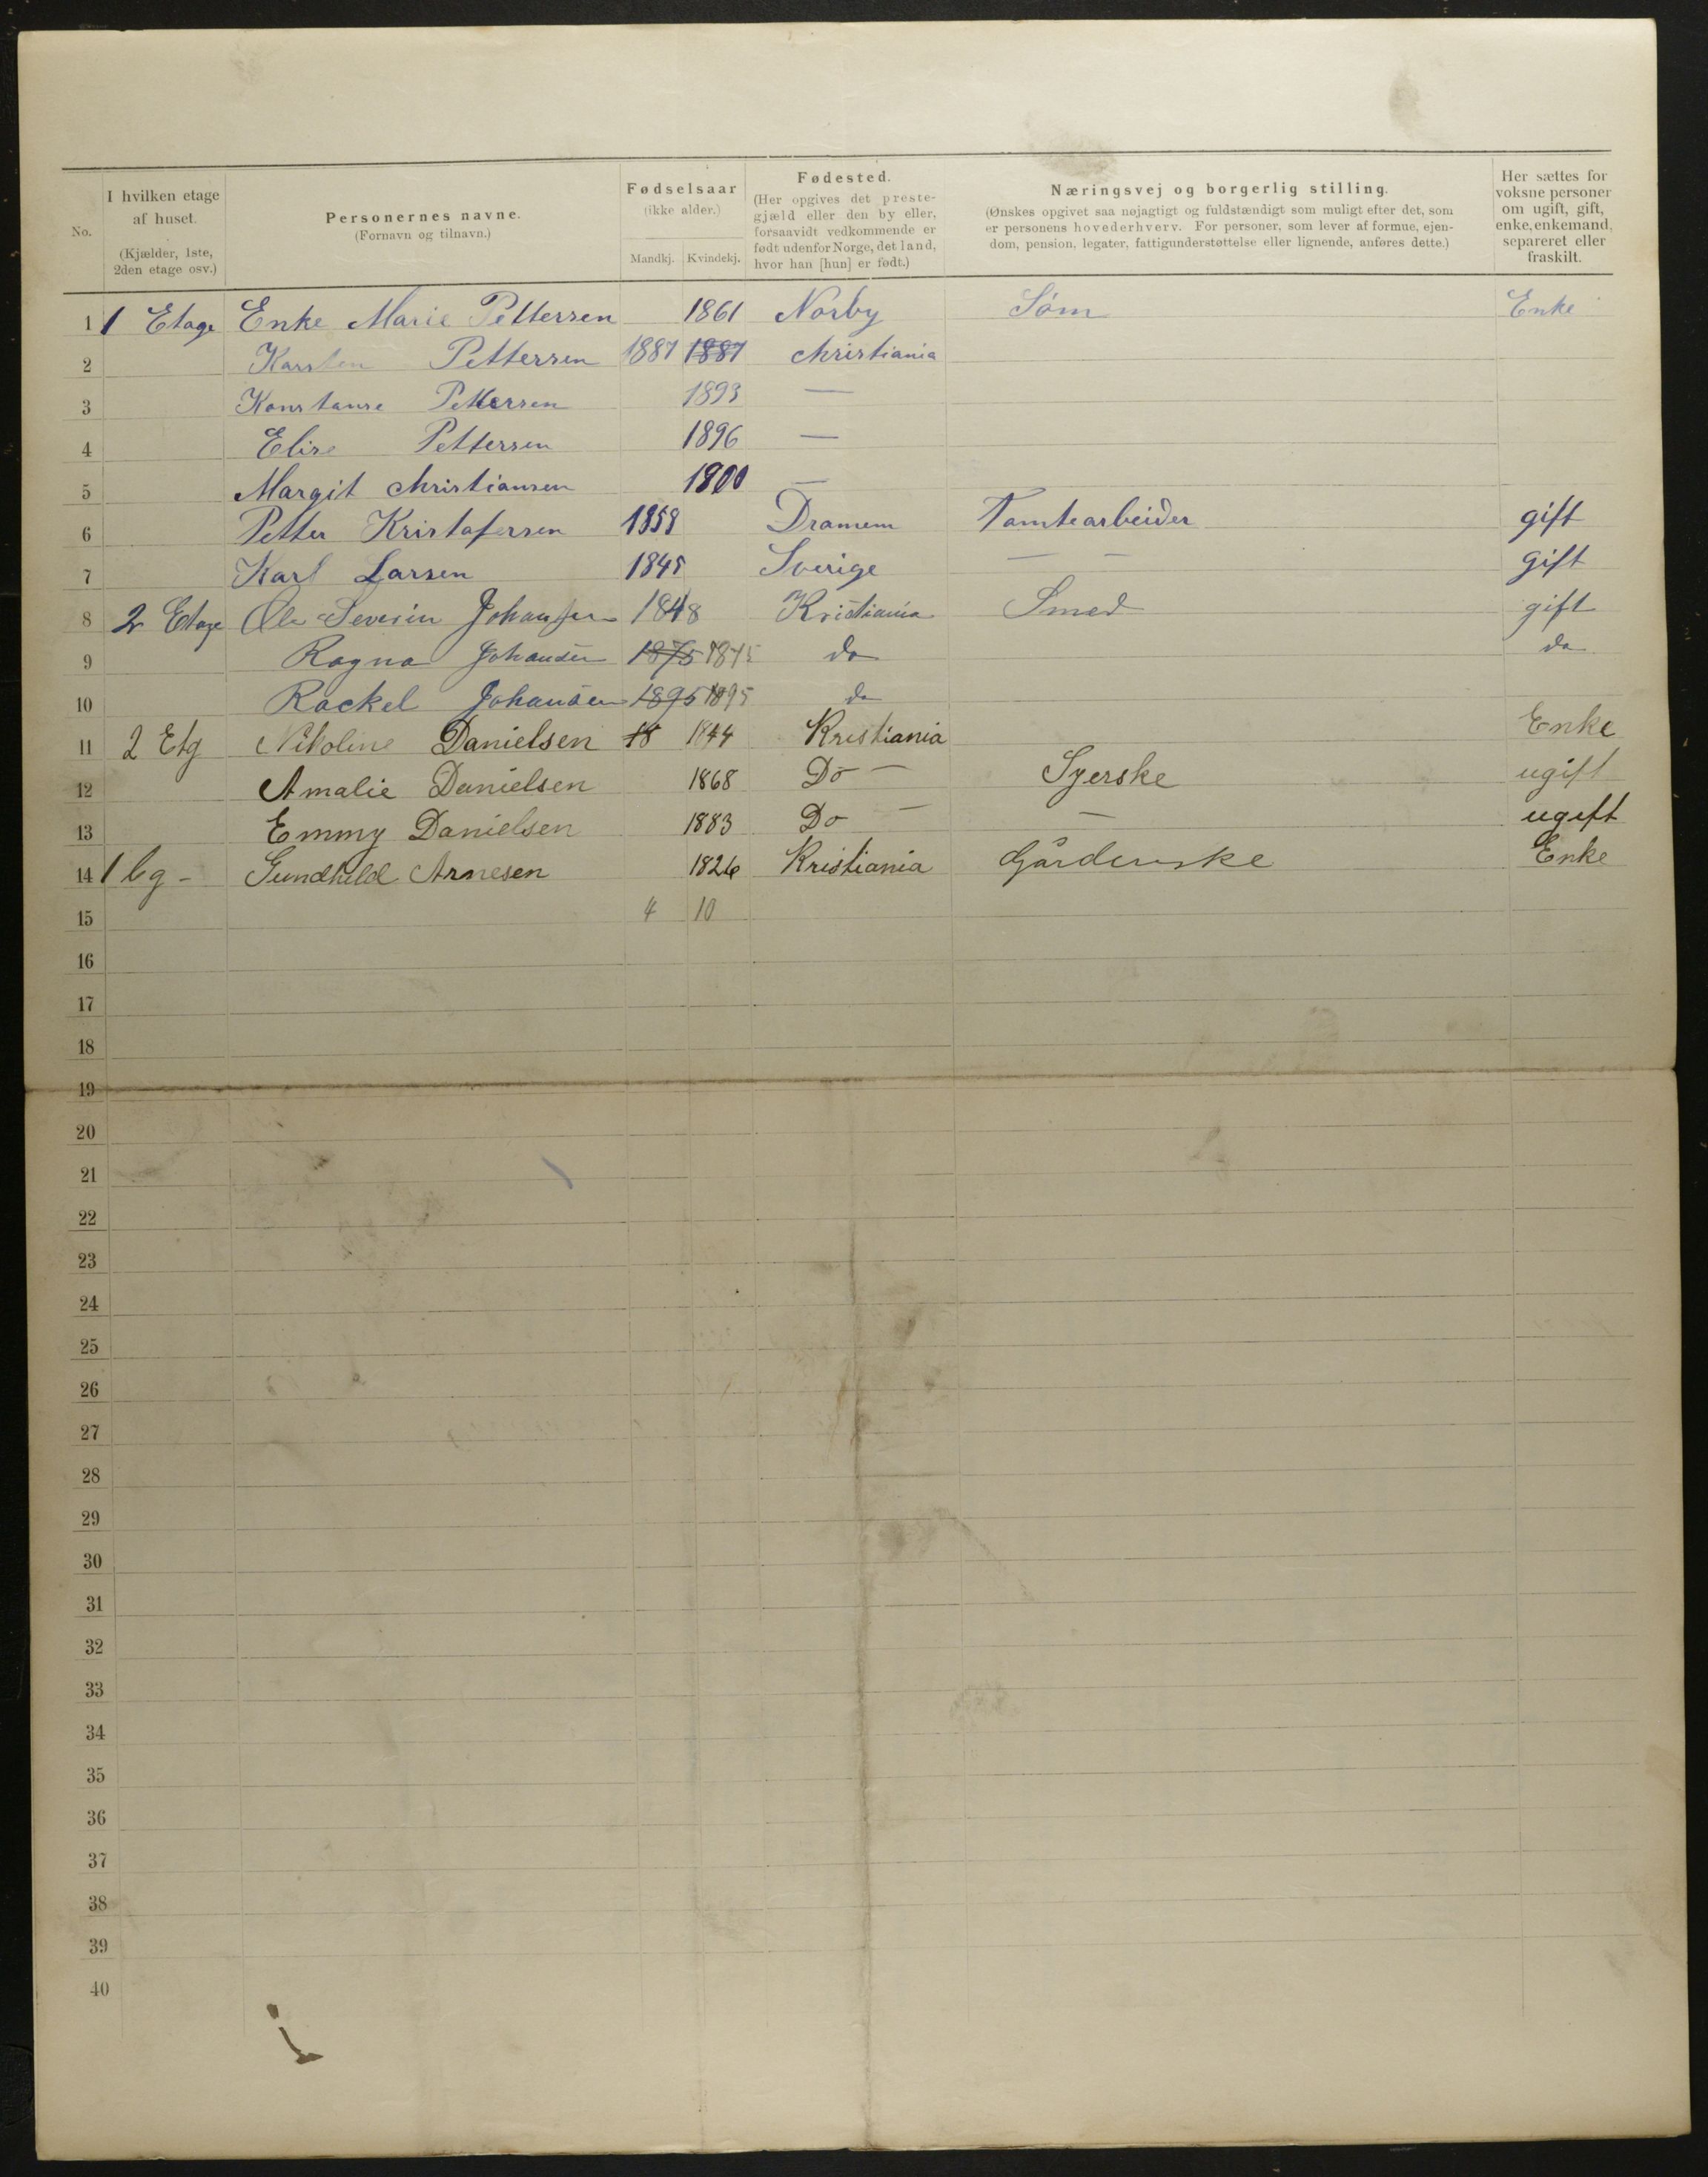 No.
I hvilken etage
af huset.
(Kjælder, 1ste,
2den etage osv.)
Personernes navne.
(Fornavn og tilnavn.)
Fødselsaar
(ikke alder.)
Mandkj. Kvindekj.
Fødested.
(Her opgives det preste-
gjæld eller den by eller,
forsaavidt vedkommende er
født udenfor Norge, det land,
hvor han [hun] er født.)
Næringsvej og borgerlig stilling.
(Ønskes opgivet saa nøjagtigt og fuldstændigt som muligt efter det, som
er personens hovederhverv. For personer, som lever af formue, ejen-
dom, pension, legater, fattigunderstøttelse eller lignende, anføres dette.)
Her sættes for
voksne personer
om ugift, gift,
enke, enkemand,
separeret eller
fraskilt.
1 1 Etage Enke Marie Pettersen 1861 Norby Søm Enke
2 Karsten Pettersen 1887 1887 Christiania
3 Konstanse Pettersen 1893 —
4 Elise Pettersen 1896 —
5 Margit Christiansen 1900 —
6 Petter Kristofersen 1858 Dramem Tomtearbeider gift
7 Karl Larsen 1845 Sverige — — gift
8 2 Etage Ole Severin Johansen 1848 Kristiania Smed gift
9 Ragna Johansen 1875 1875 do do
10 Rackel Johansen 1895 1895 do
11 2 Etg Nikoline Danielsen 18 1844 Kristiania Enke
12 Amalie Danielsen 1868 Do — Syerske ugift
13 Emmy Danielsen 1883 Do — — ugift
14 1 Eg - Gundhild Arnesen 1826 Kristiania Gårdeierske Enke
15 4 10
16
17
18
19
20
21
22
23
24
25
26
27
28
29
30
31
32
33
34
35
36
37
38
39
40